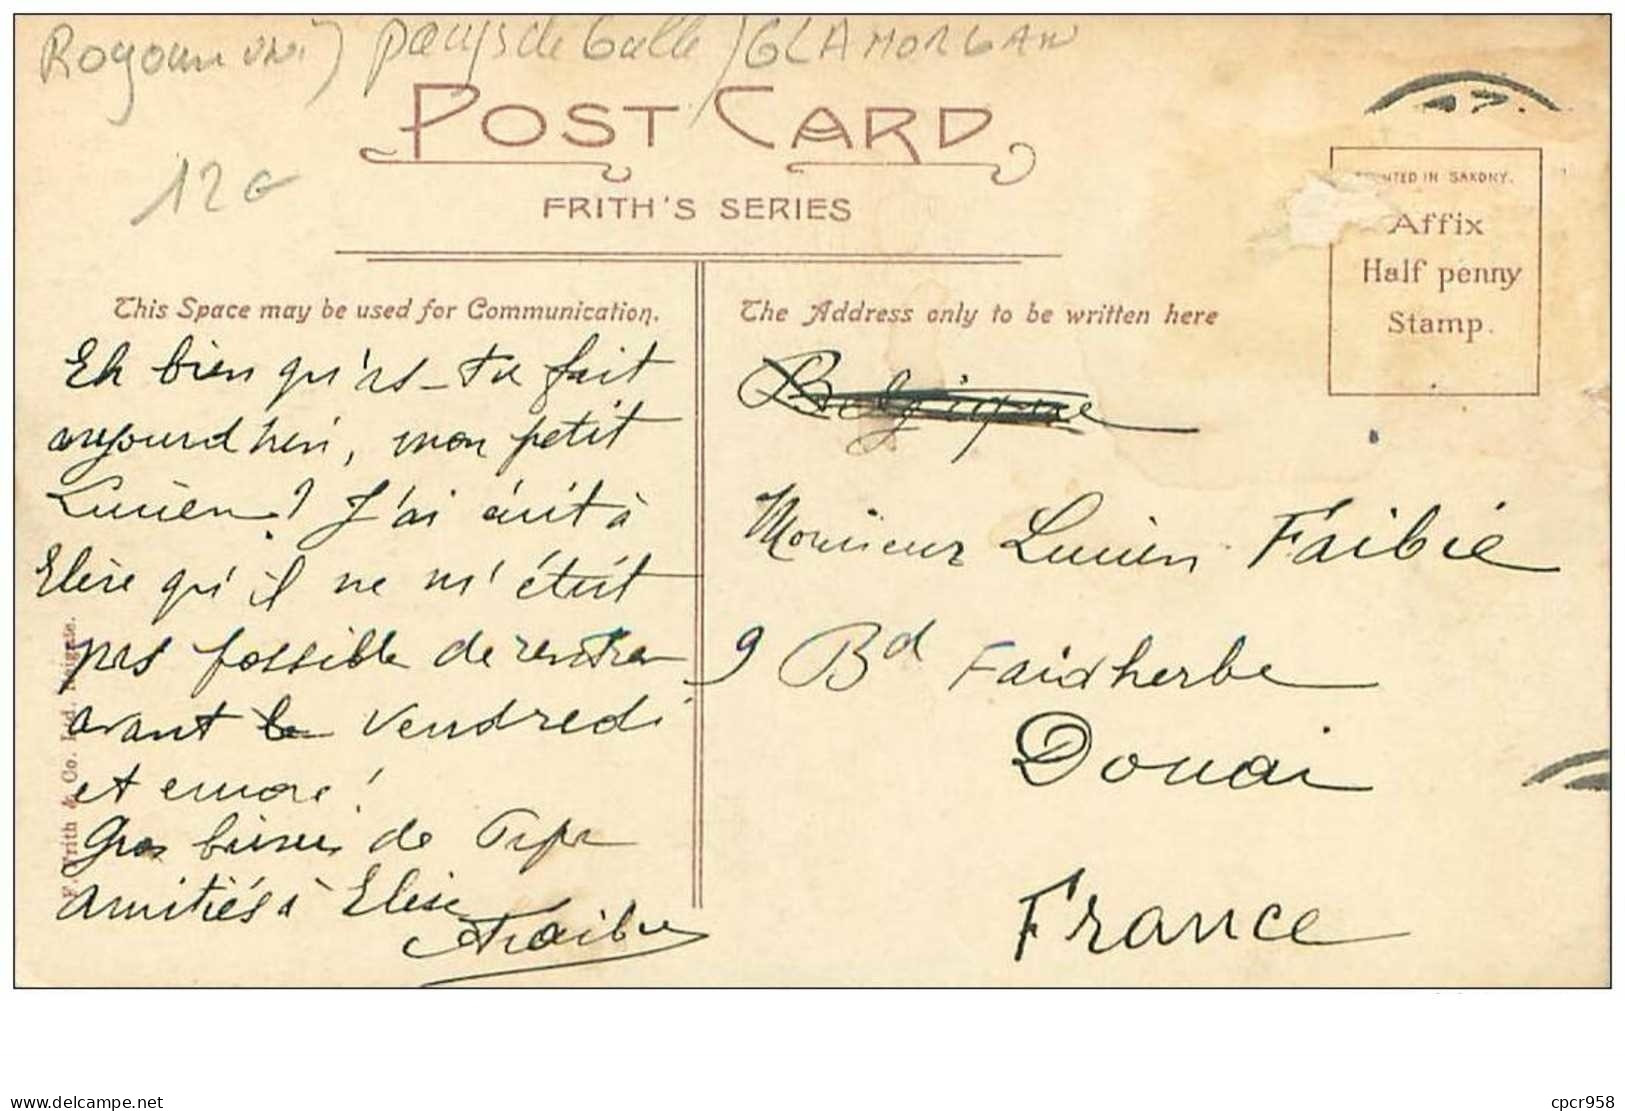 Royaume uni / pays de Galle / GLAMORGAN
POST CARD
12€
FRITH'S SERIES
PRINTED IN SAXONY.
Affix
Half penny
Stamp.
This Space may be used for Communication.
Eh bien qu'as-tu fait
aujourd'hui, mon petit
Lucien? J'ai écrit à
Elise qu'il ne m'était
pas possible de rentrer
avant le vendredi
et encore!
Gros baisers de Papa
Amitiés à Elise
Faibie
F. Frith & Co. Ltd. Reigate.
The Address only to be written here
Belgique
Monsieur Lucien Faibie
9 Bd Faidherbe
Douai
France
delcampe.net
cpcr958